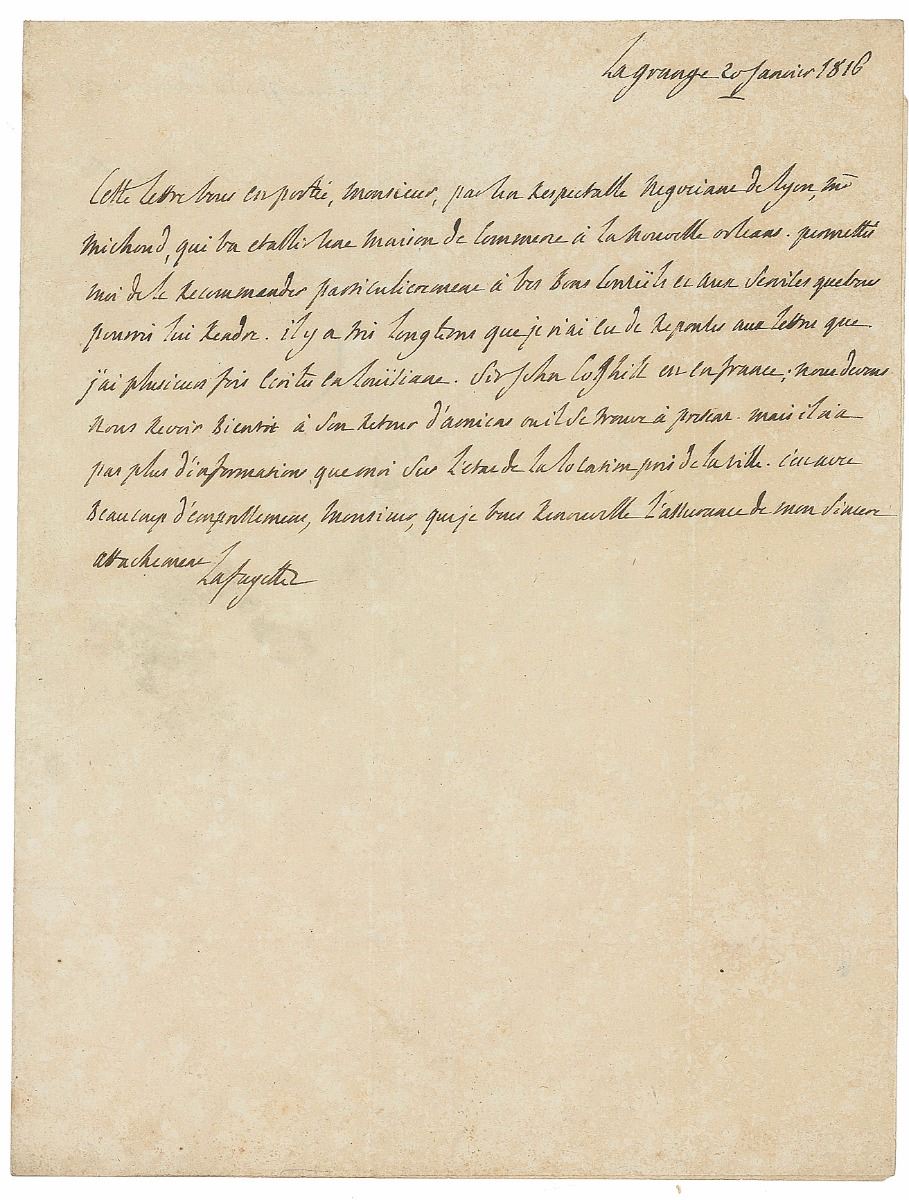 La grange 20 Janvier 1816
Cette lettre vous est portée, Monsieur, par un Respectable Negociant de Lyon, Mr
Michoud, qui va etablir une maison de Commerce à la nouvelle orleans. permettés
moi de le Recommander particulierement à vos Bons Conseils et aux Services que vous
pourrés lui Rendre. il y a trés longtems que je n'ai eu de Reponses aux lettres que
j'ai plusieurs fois écrites en Louisiane. Sir John Coghill est en france; nous devons
nous Revoir Bientot à Son Retour d' où il Se trouve à present. mais il n'a
pas plus d'informations que moi Sur L'état de la location près de la ville. c'est avec
Beaucoup d'empressement, Monsieur, que je vous Renouvelle L'assurance de mon Sincere
attachement
Lafayette